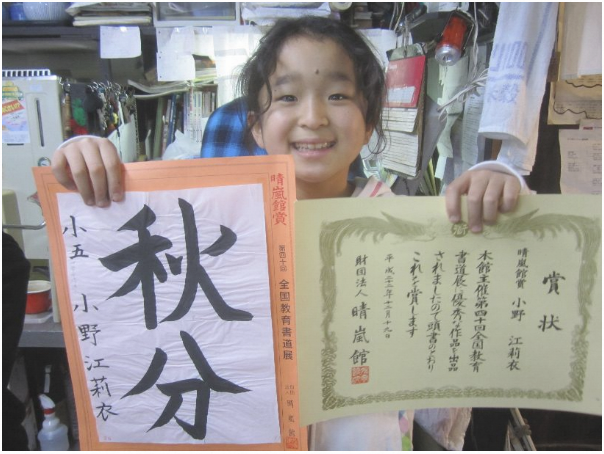 晴嵐館賞
第四十回 全国教育書道展
秋分
小五 小野江莉衣
賞状
晴嵐館賞 小野 江莉衣
本館主催第四十回全国教育
書道展に優秀な作品を出品
されましたので頭書のとおり
これを賞します
財団法人 晴嵐館